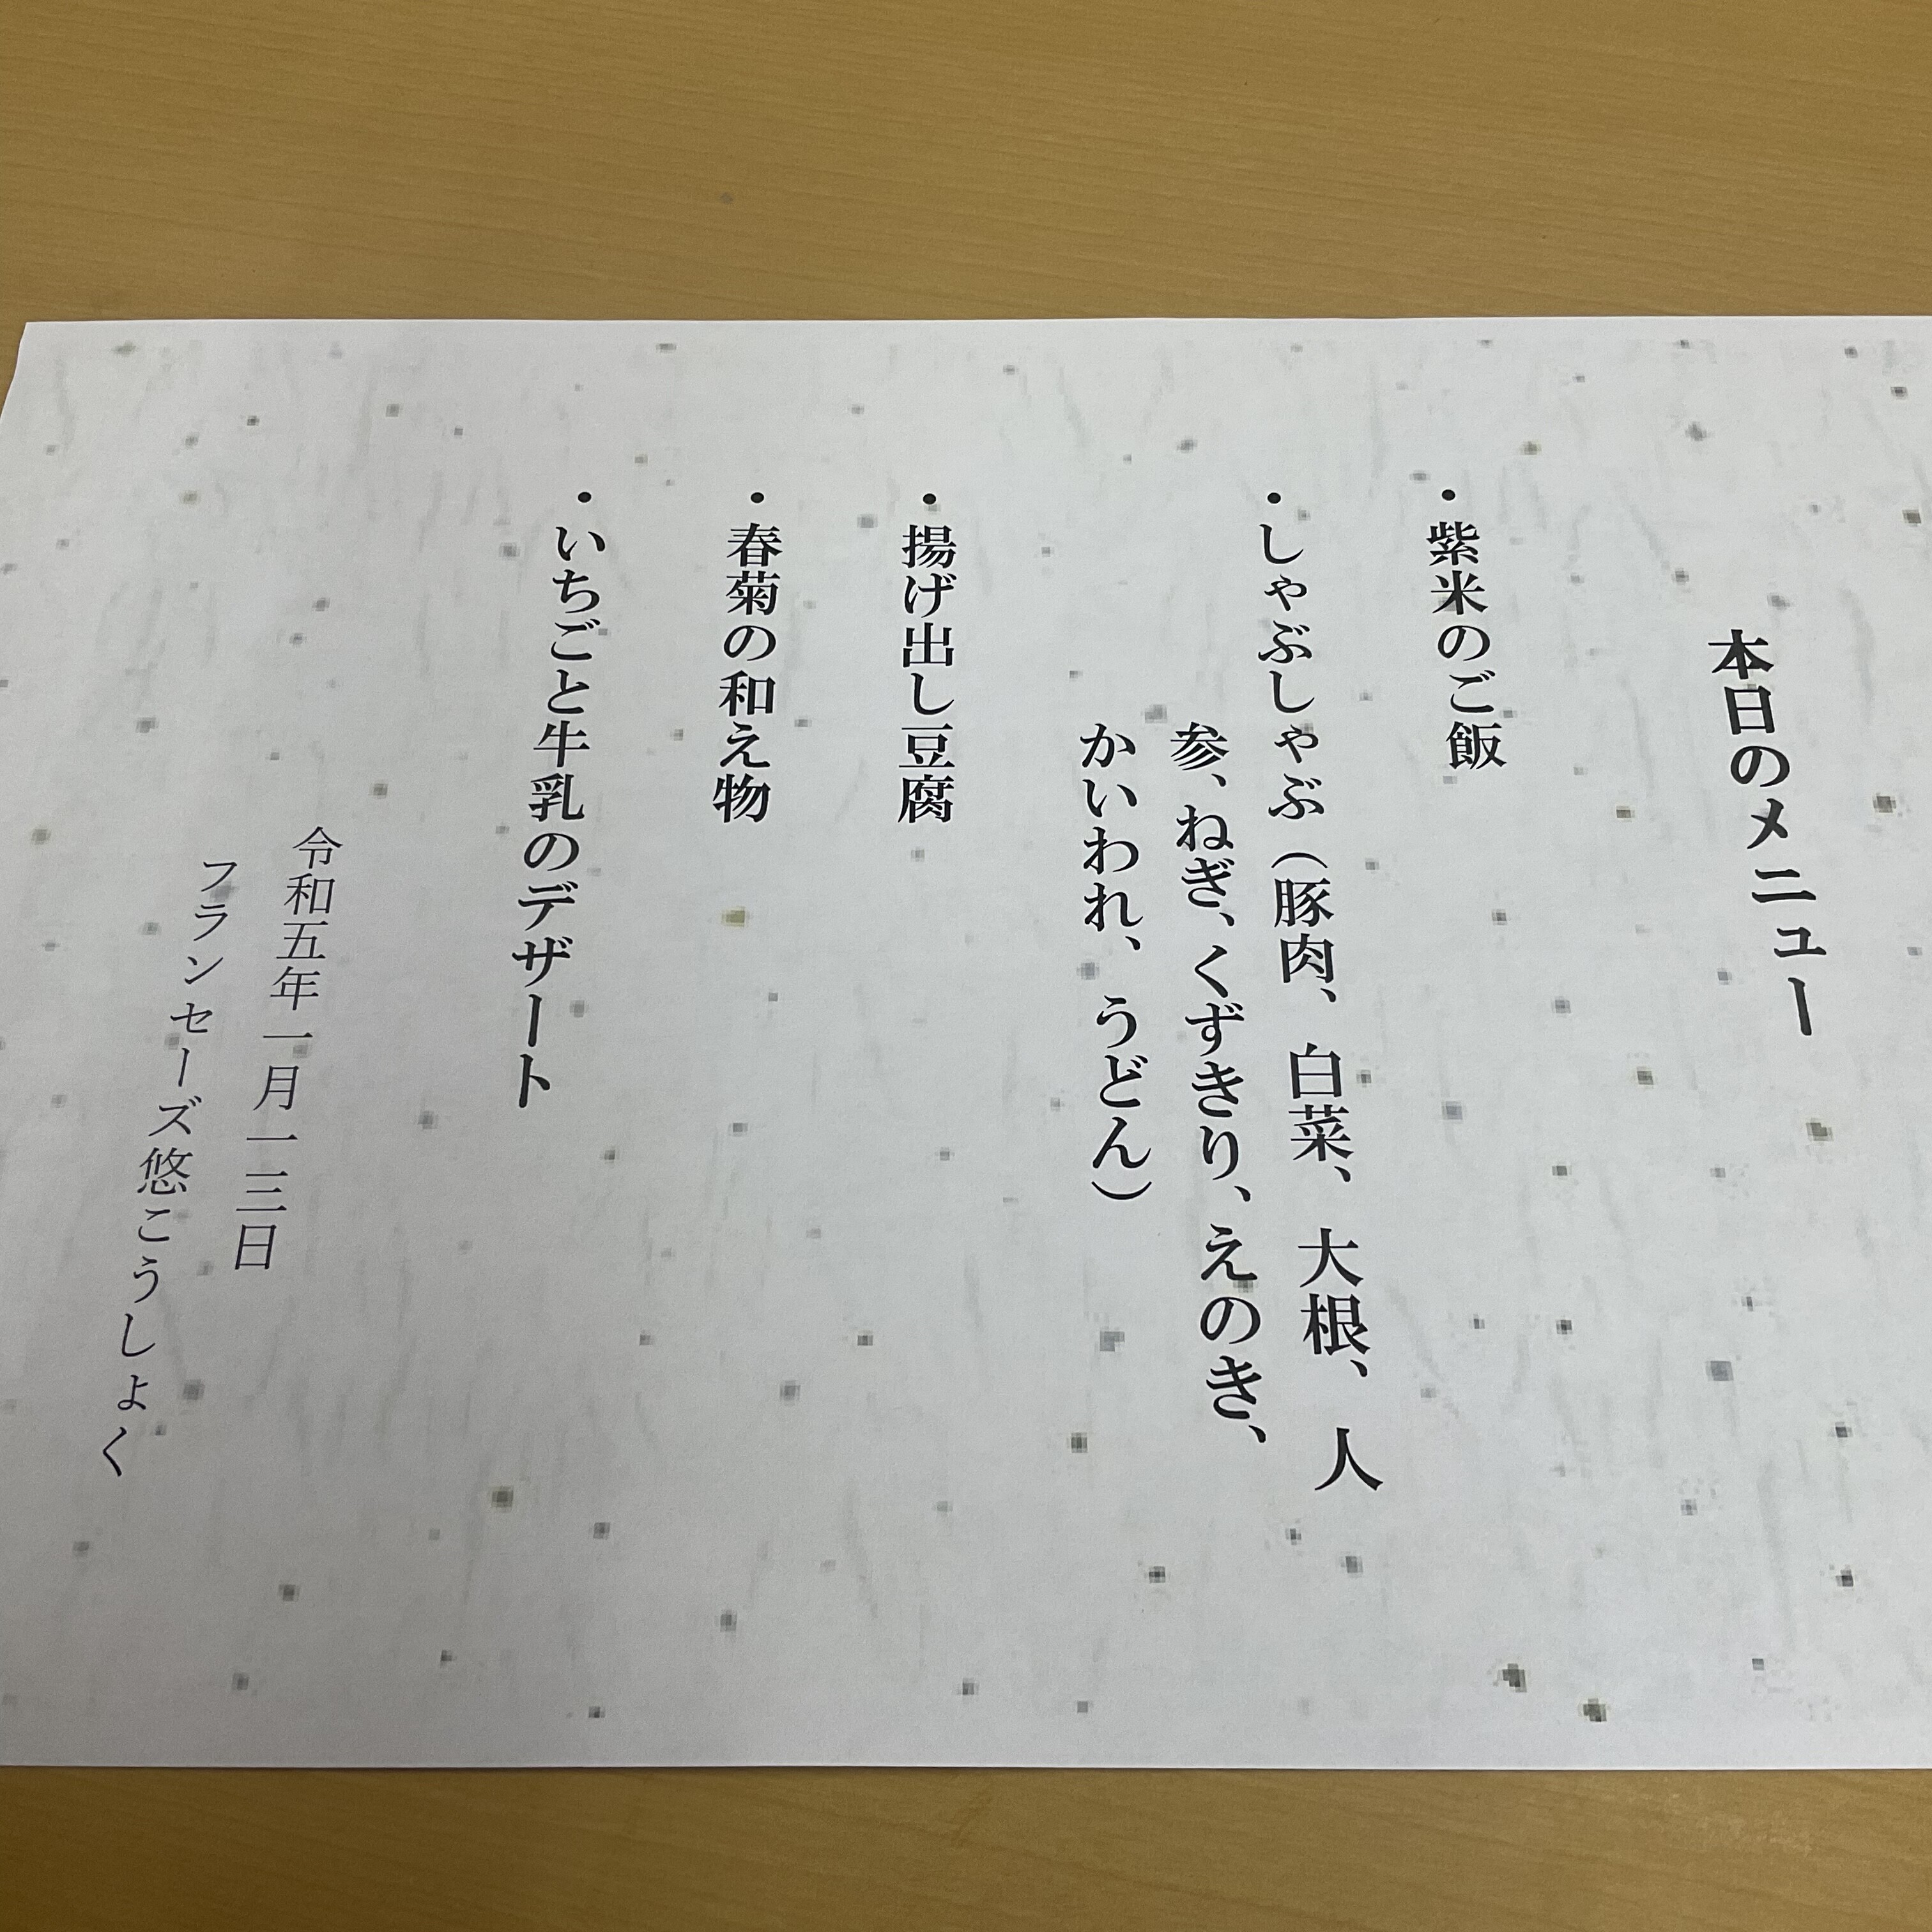 本日のメニュー
・紫米のご飯
・しゃぶしゃぶ（豚肉、白菜、大根、人
参、ねぎ、くずきり、えのき、
かいわれ、うどん）
・揚げ出し豆腐
・春菊の和え物
・いちごと牛乳のデザート
令和五年一月一三日
フランセーズ悠こうしょく